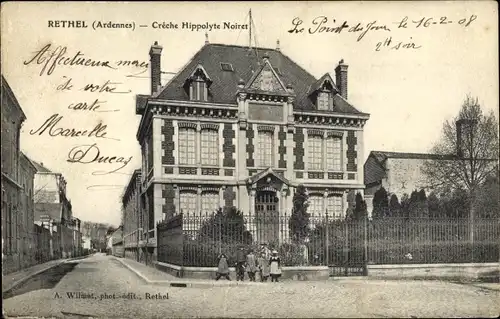 RETHEL (Ardennes) — Crèche Hippolyte Noiret
Le Point du Jour le 16-2-08
2h soir
Affectueux merci
de votre
carte
Marcelle
Ducas
A. Wilmet, phot.-édit., Rethel